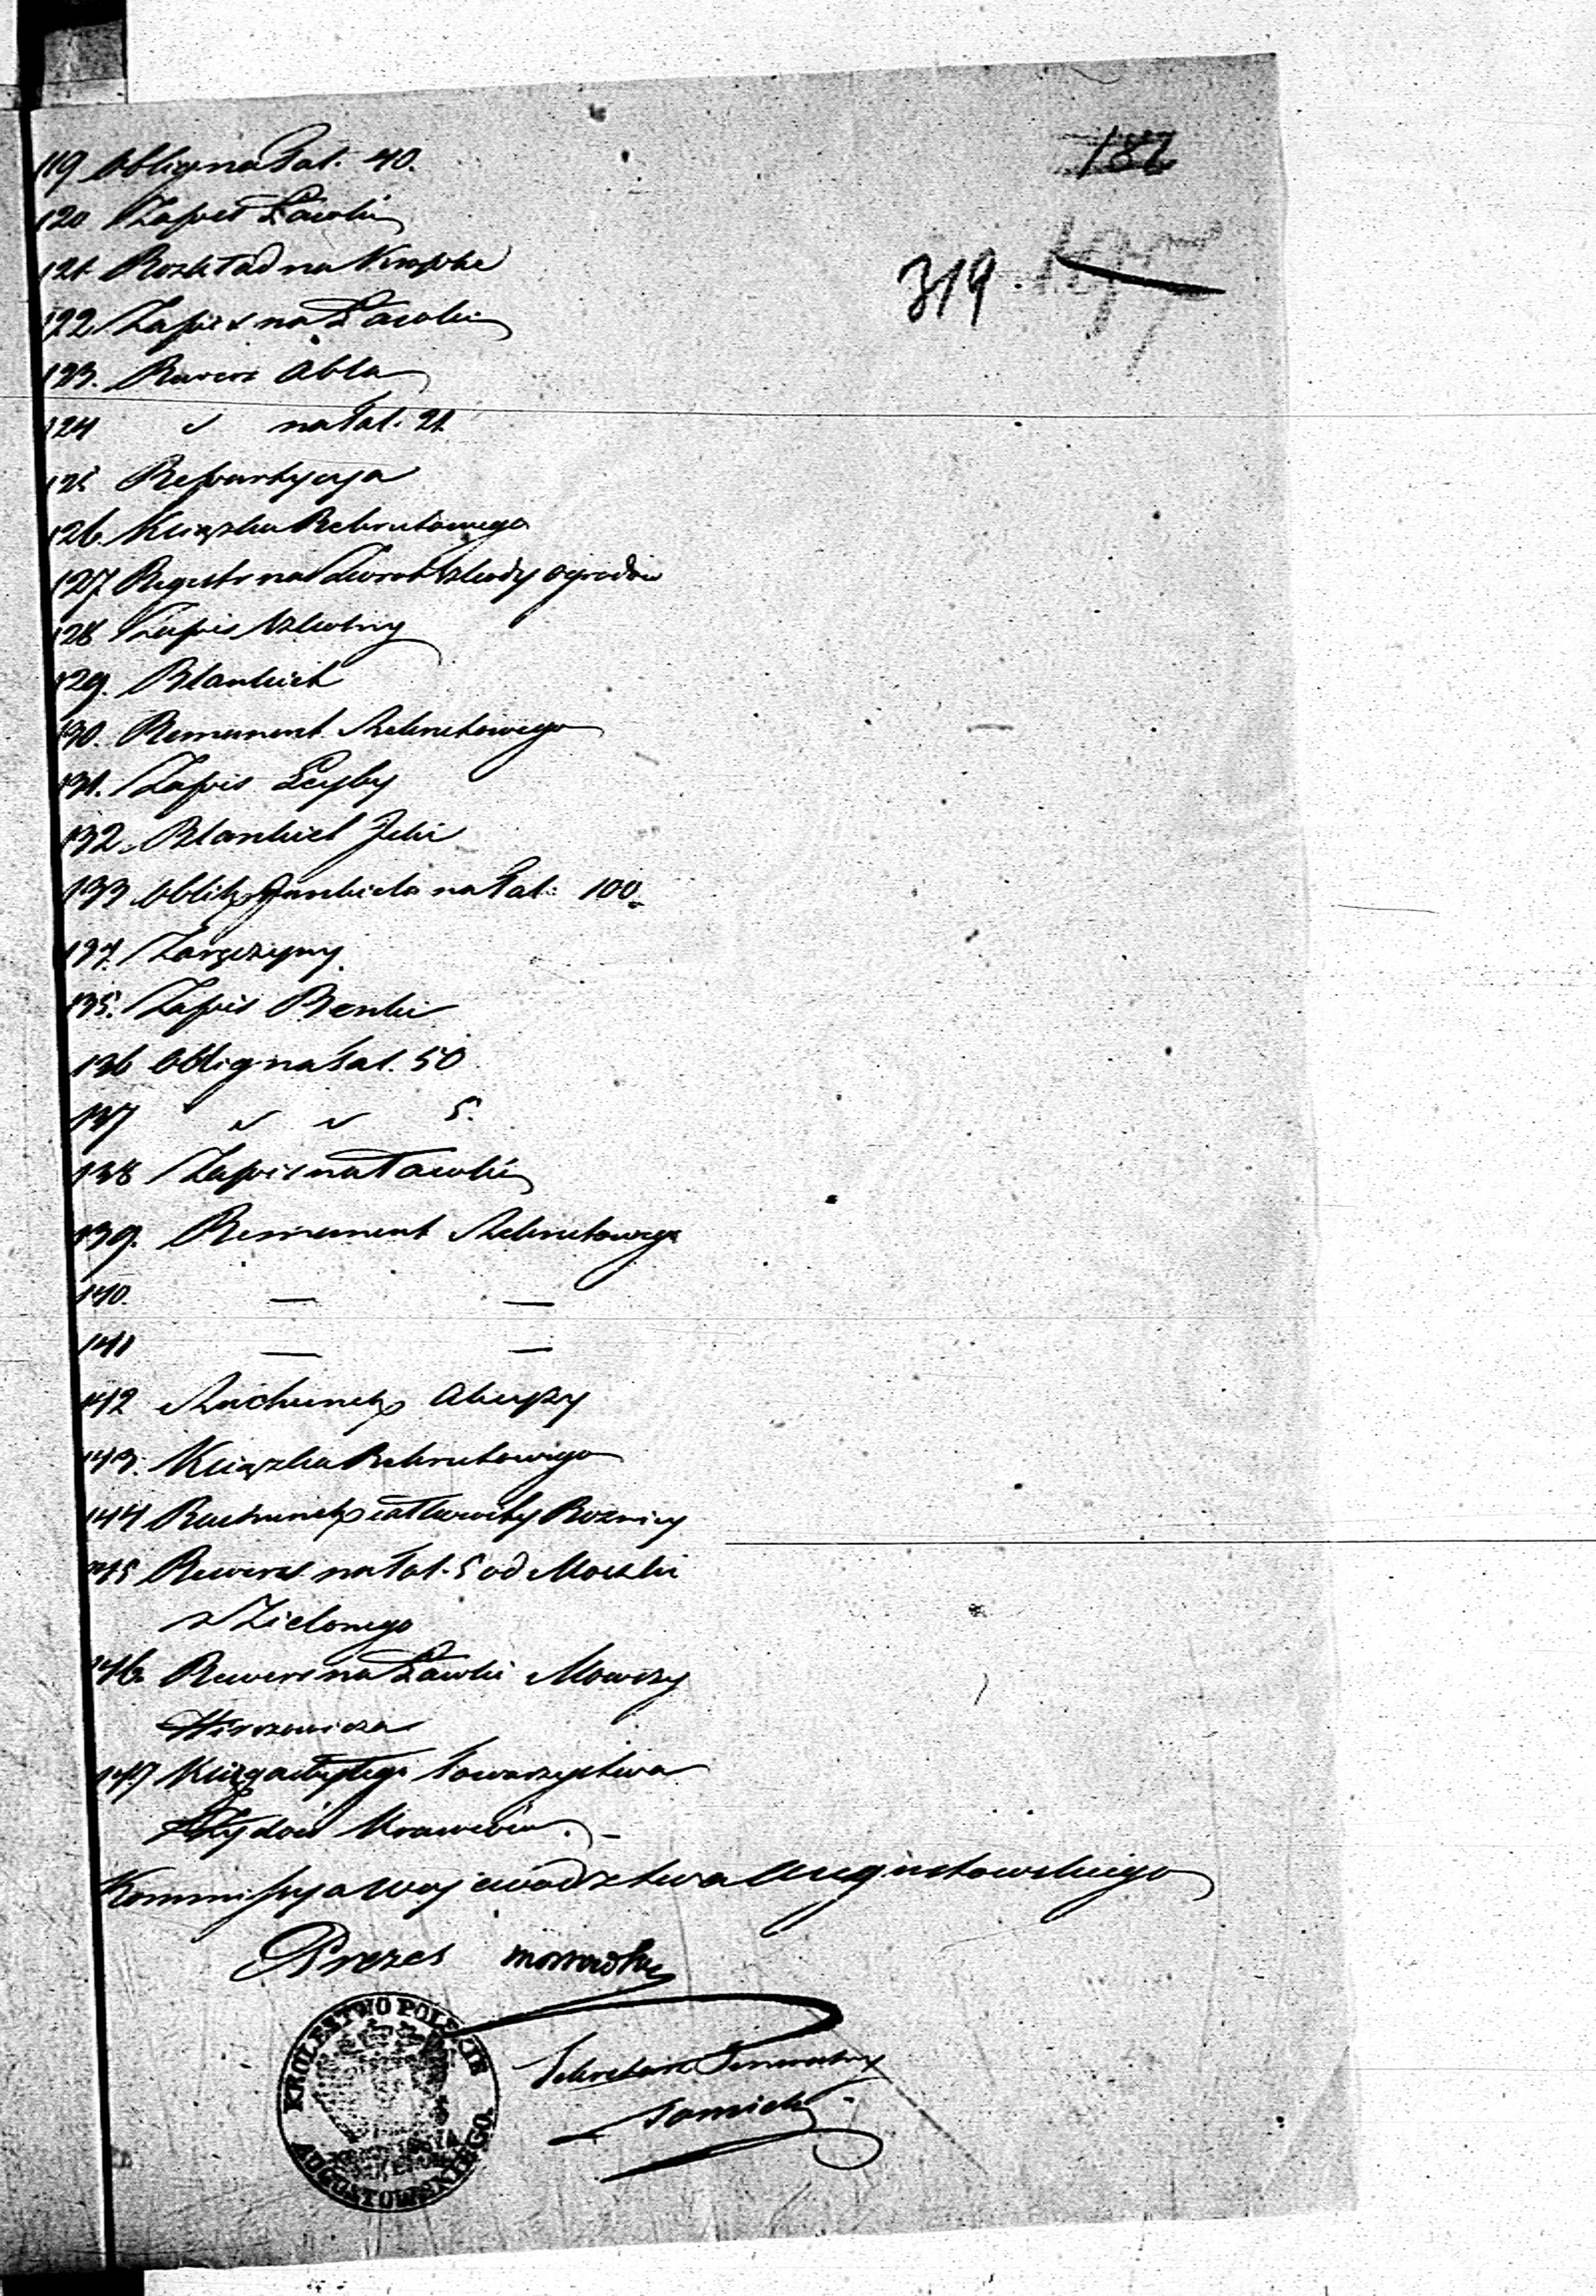 186
319
119 Oblig na tal. 40.
120. Zapis Ławki
121. Rozkład na Kropke
122. Zapis na Ławki
123. Rewers Abla
124 " na tal. 21.
125 Repartycyja
126. Książka Rekrutowego
127 Regestr na zwrot szkody ogrodów
128 Zapis Szkolny
129. Blankiet
130. Remanent Rekrutowego
131. Zapis Leyby
132. Blankiet Icki
133 Oblik Jankiela na tal: 100.
134. Zaręczyny
135. Zapis Benki
136 Oblig na tal. 50
137 " " 5.
138 Zapis na Ławki
139. Remanent Rekrutowego
140. — —
141 — —
142 Rachunek Akcyzy
143. Książka Rekrutowego
144 Rachunek Bożnicy
145 Rewers na tal. 5 od Moszki
z Zielonego
146. Rewers na Ławki Mowszy
Hirszowicza
147 Towarzystwa
Żydów Krawców. —
Kommissya Województwa Augustowskiego
Prezes
KROLESTWO POLSKIE
AUGUSTOWSKIEGO.
Sekretarz Generalny